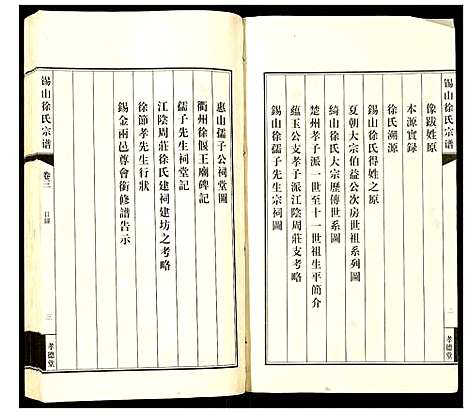 錫山徐氏宗譜
二
孝德堂
像跋姓原
本源實録
徐氏溯源
錫山徐氏得姓之原
夏朝大宗伯益公次房世祖系列圖
綺山徐氏大宗歷傳世系圖
楚州孝子派一世至十一世祖生平簡介
蘊玉公支孝子派江陰周莊支考略
錫山徐孺子先生宗祠圖
惠山孺子公祠堂圖
衢州徐偃王廟碑記
孺子先生祠堂記
江陰周莊徐氏建祠建坊之考略
徐節孝先生行狀
錫金兩邑尊會銜修譜告示
錫山徐氏宗譜
卷三
目録
三
孝德堂